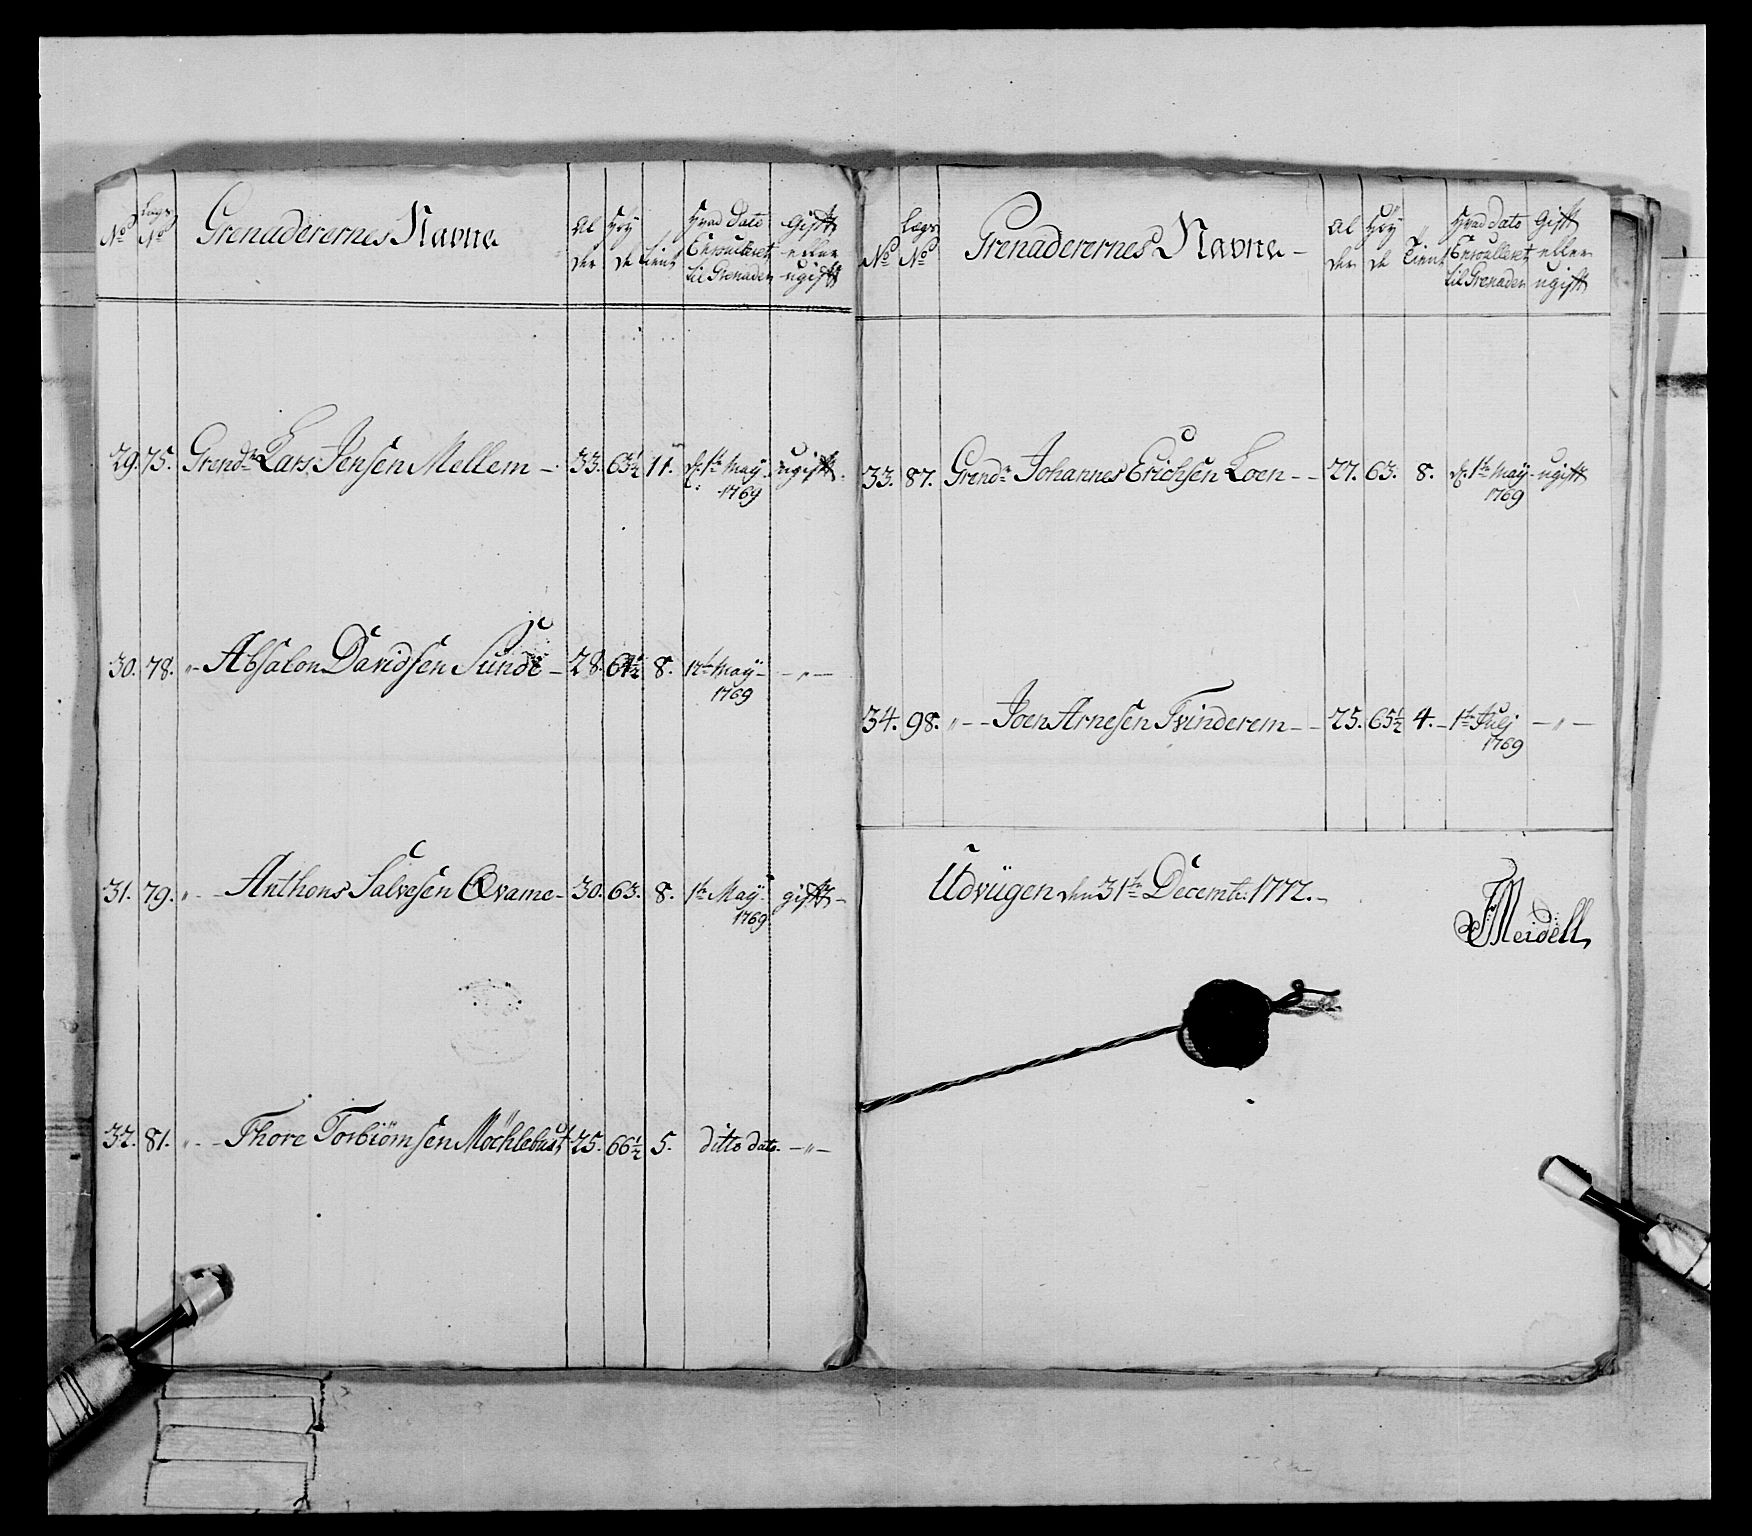 No Lægs No Grenaderernes Navne Alder Høyde Tient Hvad Dato Enroulleret til Grenader Gift eller ugift
29. 75. Grendr Lars Jensen Mellem - 33. 63½ 11. d. 1te May 1769 ugift.
30. 78. "- Absalon Davidsen Sunde - 28. 8. 1te May - 1769 - " -
31. 79. " - - Anthons Salvesen Qvame - 30. 63. 8. 1te May 1769 gift -
32. 81. " - - Thore Torbiörnsen Möchlebust 25. 66½ 5. ditto dato. - " -
No Lægs No Grenaderernes Navne - Alder Høyde Tient Hvad Dato Enroulleret til Grenader Gift eller ugift
33. 87. Grendr Johannes Erichsen Loen - - 27. 63. 8. d. 1te May 1769 - ugift
34. 98. " - - Joen Arnesen Tvinderem - - 25. 65½ 4. - 1te Julj 1769 - " -
Udvügen den 31te Decembr. 1772. -
Meidell